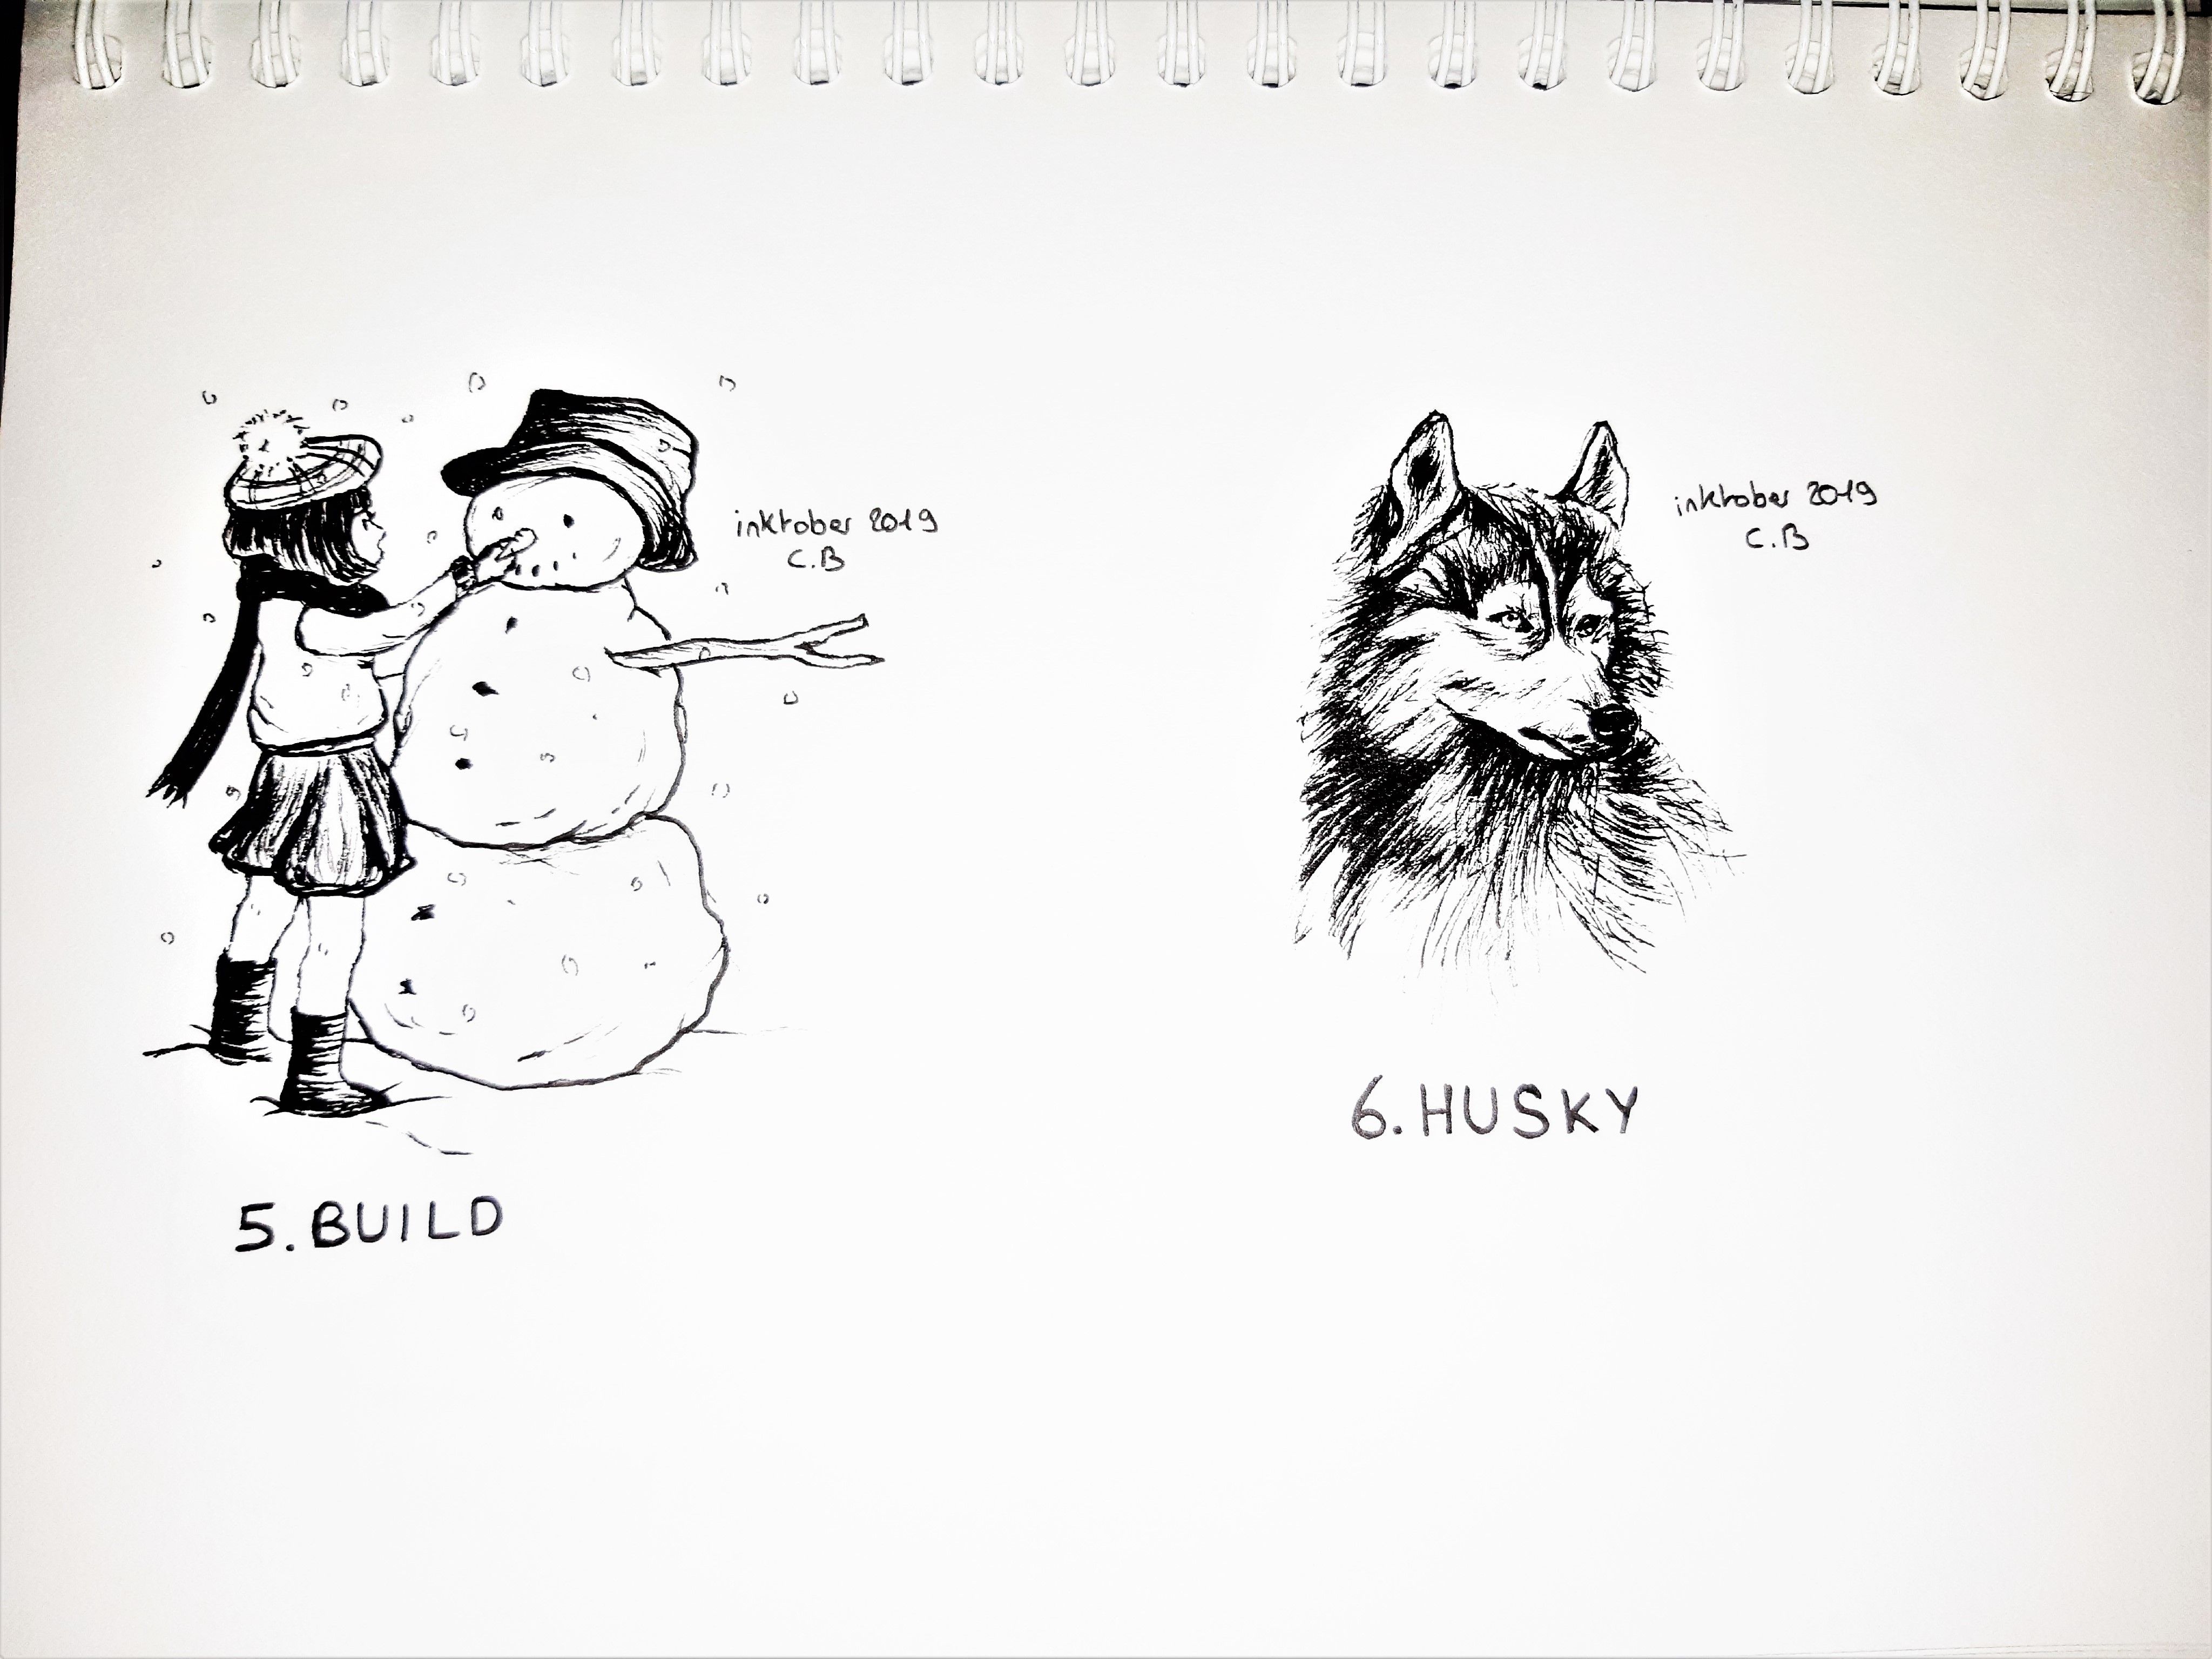 inktober 2019
C.B
5. BUILD
inktober 2019
C.B
6. HUSKY